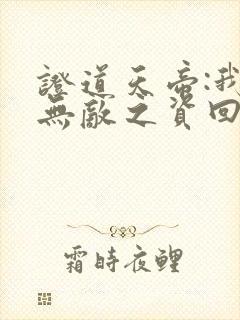 證道天帝:我
無敵之資回
霜時夜鯉